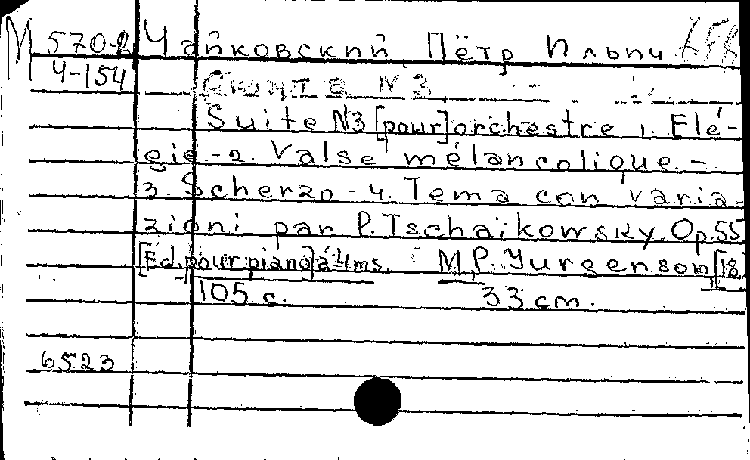 М 570-2 Чайковский Пётр Ильич
Ч-154
Сюита N 3
Suite N3 [pour] orchestre 1. Elé-
gie-2. Valse mélancolique -
3. Scherzo - 4. Tema con varia-
zioni par P. Tschaïkowsky Op. 55
[Ed. pour piano] à 4 ms. M., P. Jurgenson, [18
105 с. 33 cm.
6523